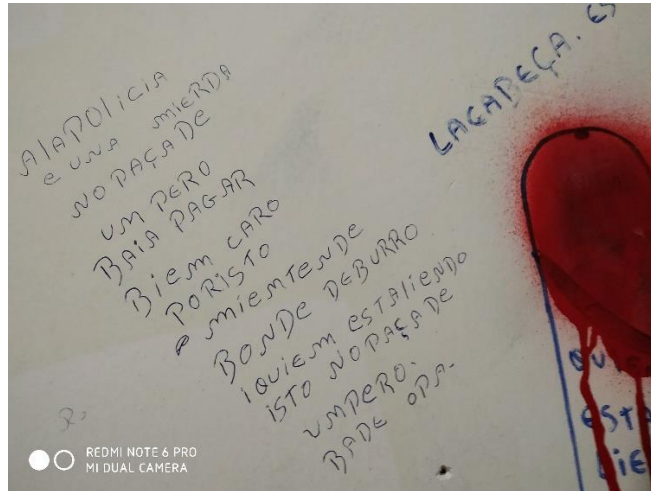 ALAPOLICIA
e UNA MIERDA
NO PAÇADE
UM PERO
BAIA PAGAR
BIEM CARO
PORISTO
e MIEMTENDE
BONDE DEBURRO
iQUIEM ESTALIENDO
ISTO NOPAÇADE
UMPERO.
BADE OPA.
LACABEÇA. ES
QUI
ESTA
LIE
REDMI NOTE 6 PRO
MI DUAL CAMERA